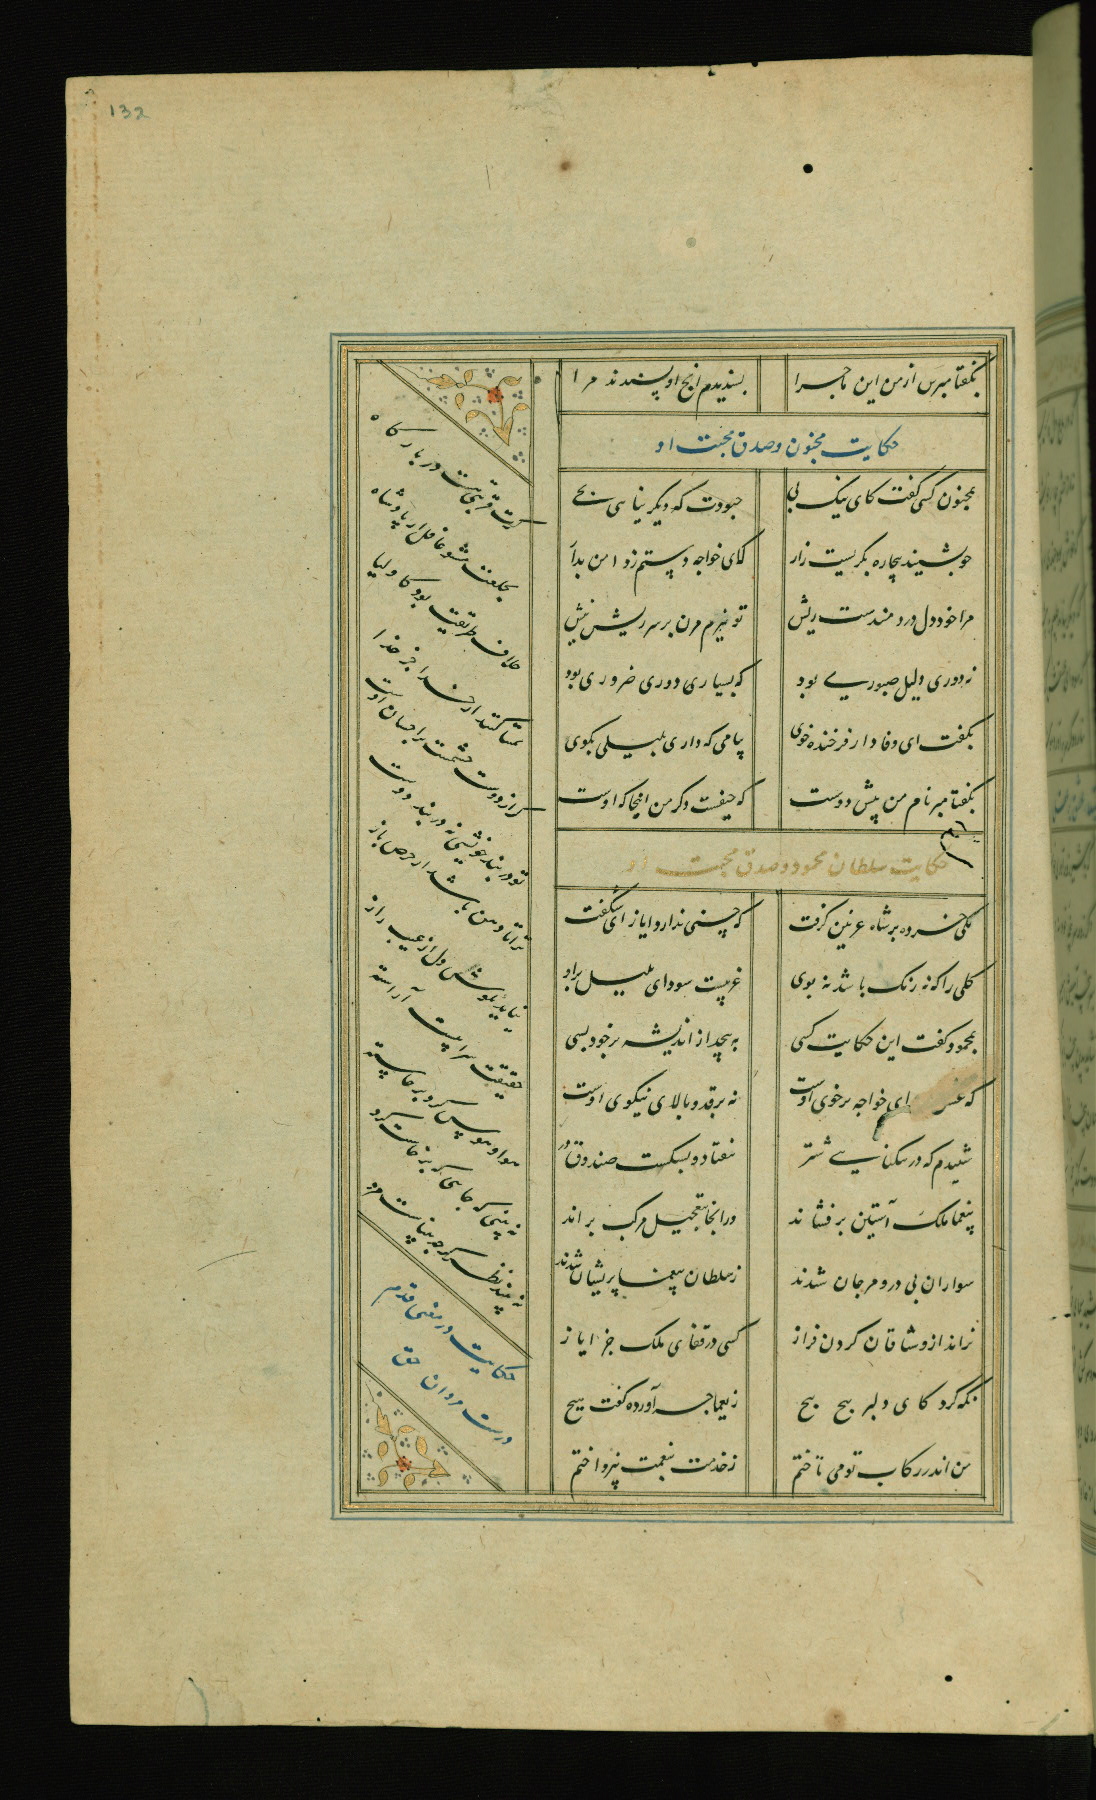 132
بگفتا مپرس از من این ماجرا
پسندیدم انچ او پسندد مرا
حکایت مجنون و صدق محبت او
بمجنون کسی گفت کای نیک پی
چبودت که دیگر نیایی بحی
چو بشنید بیچاره بگریست زار
که ای خواجه دستم ز دامن بدار
مرا خود دل دردمندست ریش
تو نیزم مزن بر سر ریش نیش
نه دوری دلیل صبوری بود
که بسیاری دوری ضروری بود
بگفت ای وفادار فرخنده خوی
پیامی که داری بلیلی بگوی
بگفتا مبر نام من پیش دوست
که حیفست ذکر من انجا که اوست
حکایت سلطان محمود و صدق محبت او
یکی خرده بر شاه غزنین گرفت
که حسنی ندارد ایاز ای شگفت
گلی را که نه رنگ باشد نه بوی
غریبست سودای بلبل براو
بمحمود گفت این حکایت کسی
به پیچید از اندیشه بر خود بسی
که عشق ای خواجه بر خوی اوست
نه بر قد و بالای نیکوی اوست
شنیدم که در تنگنایی شتر
بیفتاد و بشکست صندوق در
بیغما ملک آستین برفشاند
وز انجا بتعجیل مرکب براند
سواران پی در و مرجان شدند
ز سلطان بیغما پریشان شدند
نماند از وشاقان گردن فراز
کسی در قفای ملک جز ایاز
نگه کرد کای دلبر پیچ پیچ
ز یغما چه آورده گفت هیچ
من اندر رکاب تو می تاختم
ز خدمت بنعمت نپرداختم
گرت قربتی هست در بارگاه
بخلعت مشو غافل از پادشاه
خلاف طریقت بود کاولیا
تمنا کنند از خدا جز خدا
گر از دوست چشمت بر احسان اوست
تو در بند خویشی نه در بند دوست
ترا تا دهن باشد از حرص باز
نیاید بگوش دل از غیب راز
حقیقت سراییست آراسته
هوا و هوس گرد برخاسته
نه بینی که جایی که برخاست گرد
نه بیند نظر گرچه بیناست مرد
حکایت در معنی قدم
درست مردان حق